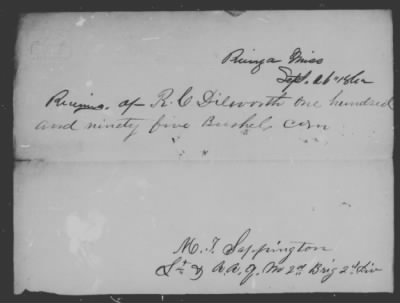 Rienza Miss
Sept. 26th 1862
Received of R. C Dilworth one hundred
and ninety five Bushel corn
M. T. Sappington
Lt & A. A. Q. M 2nd Brig 2d div